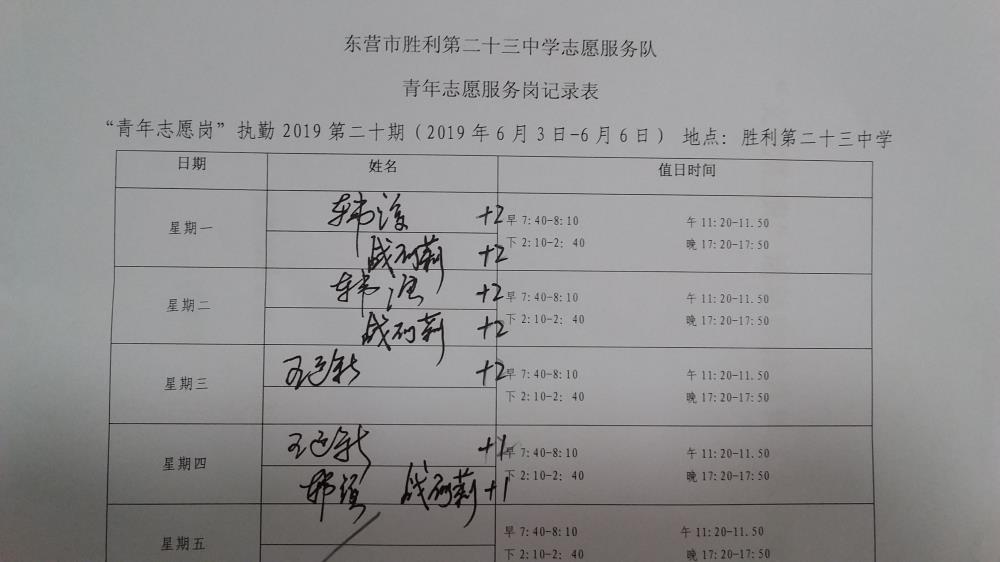 东营市胜利第二十三中学志愿服务队
青年志愿服务岗记录表
“青年志愿岗”执勤2019第二十期（2019年6月3日-6月6日） 地点：胜利第二十三中学
日期 姓名 值日时间
星期一 韩 +2 早7:40-8:10 午11:20-11.50
战 莉 +2 下2:10-2：40 晚17:20-17:50
星期二 韩 +2 早7:40-8:10 午11:20-11.50
战 莉 +2 下2:10-2：40 晚17:20-17:50
星期三 王 新 +2 早7:40-8:10 午11:20-11.50
下2:10-2：40 晚17:20-17:50
星期四 王 新 +1 早7:40-8:10 午11:20-11.50
战 莉 +1 下2:10-2：40 晚17:20-17:50
星期五 早7:40-8:10 午11:20-11.50
下2:10-2：40 晚17:20-17:50